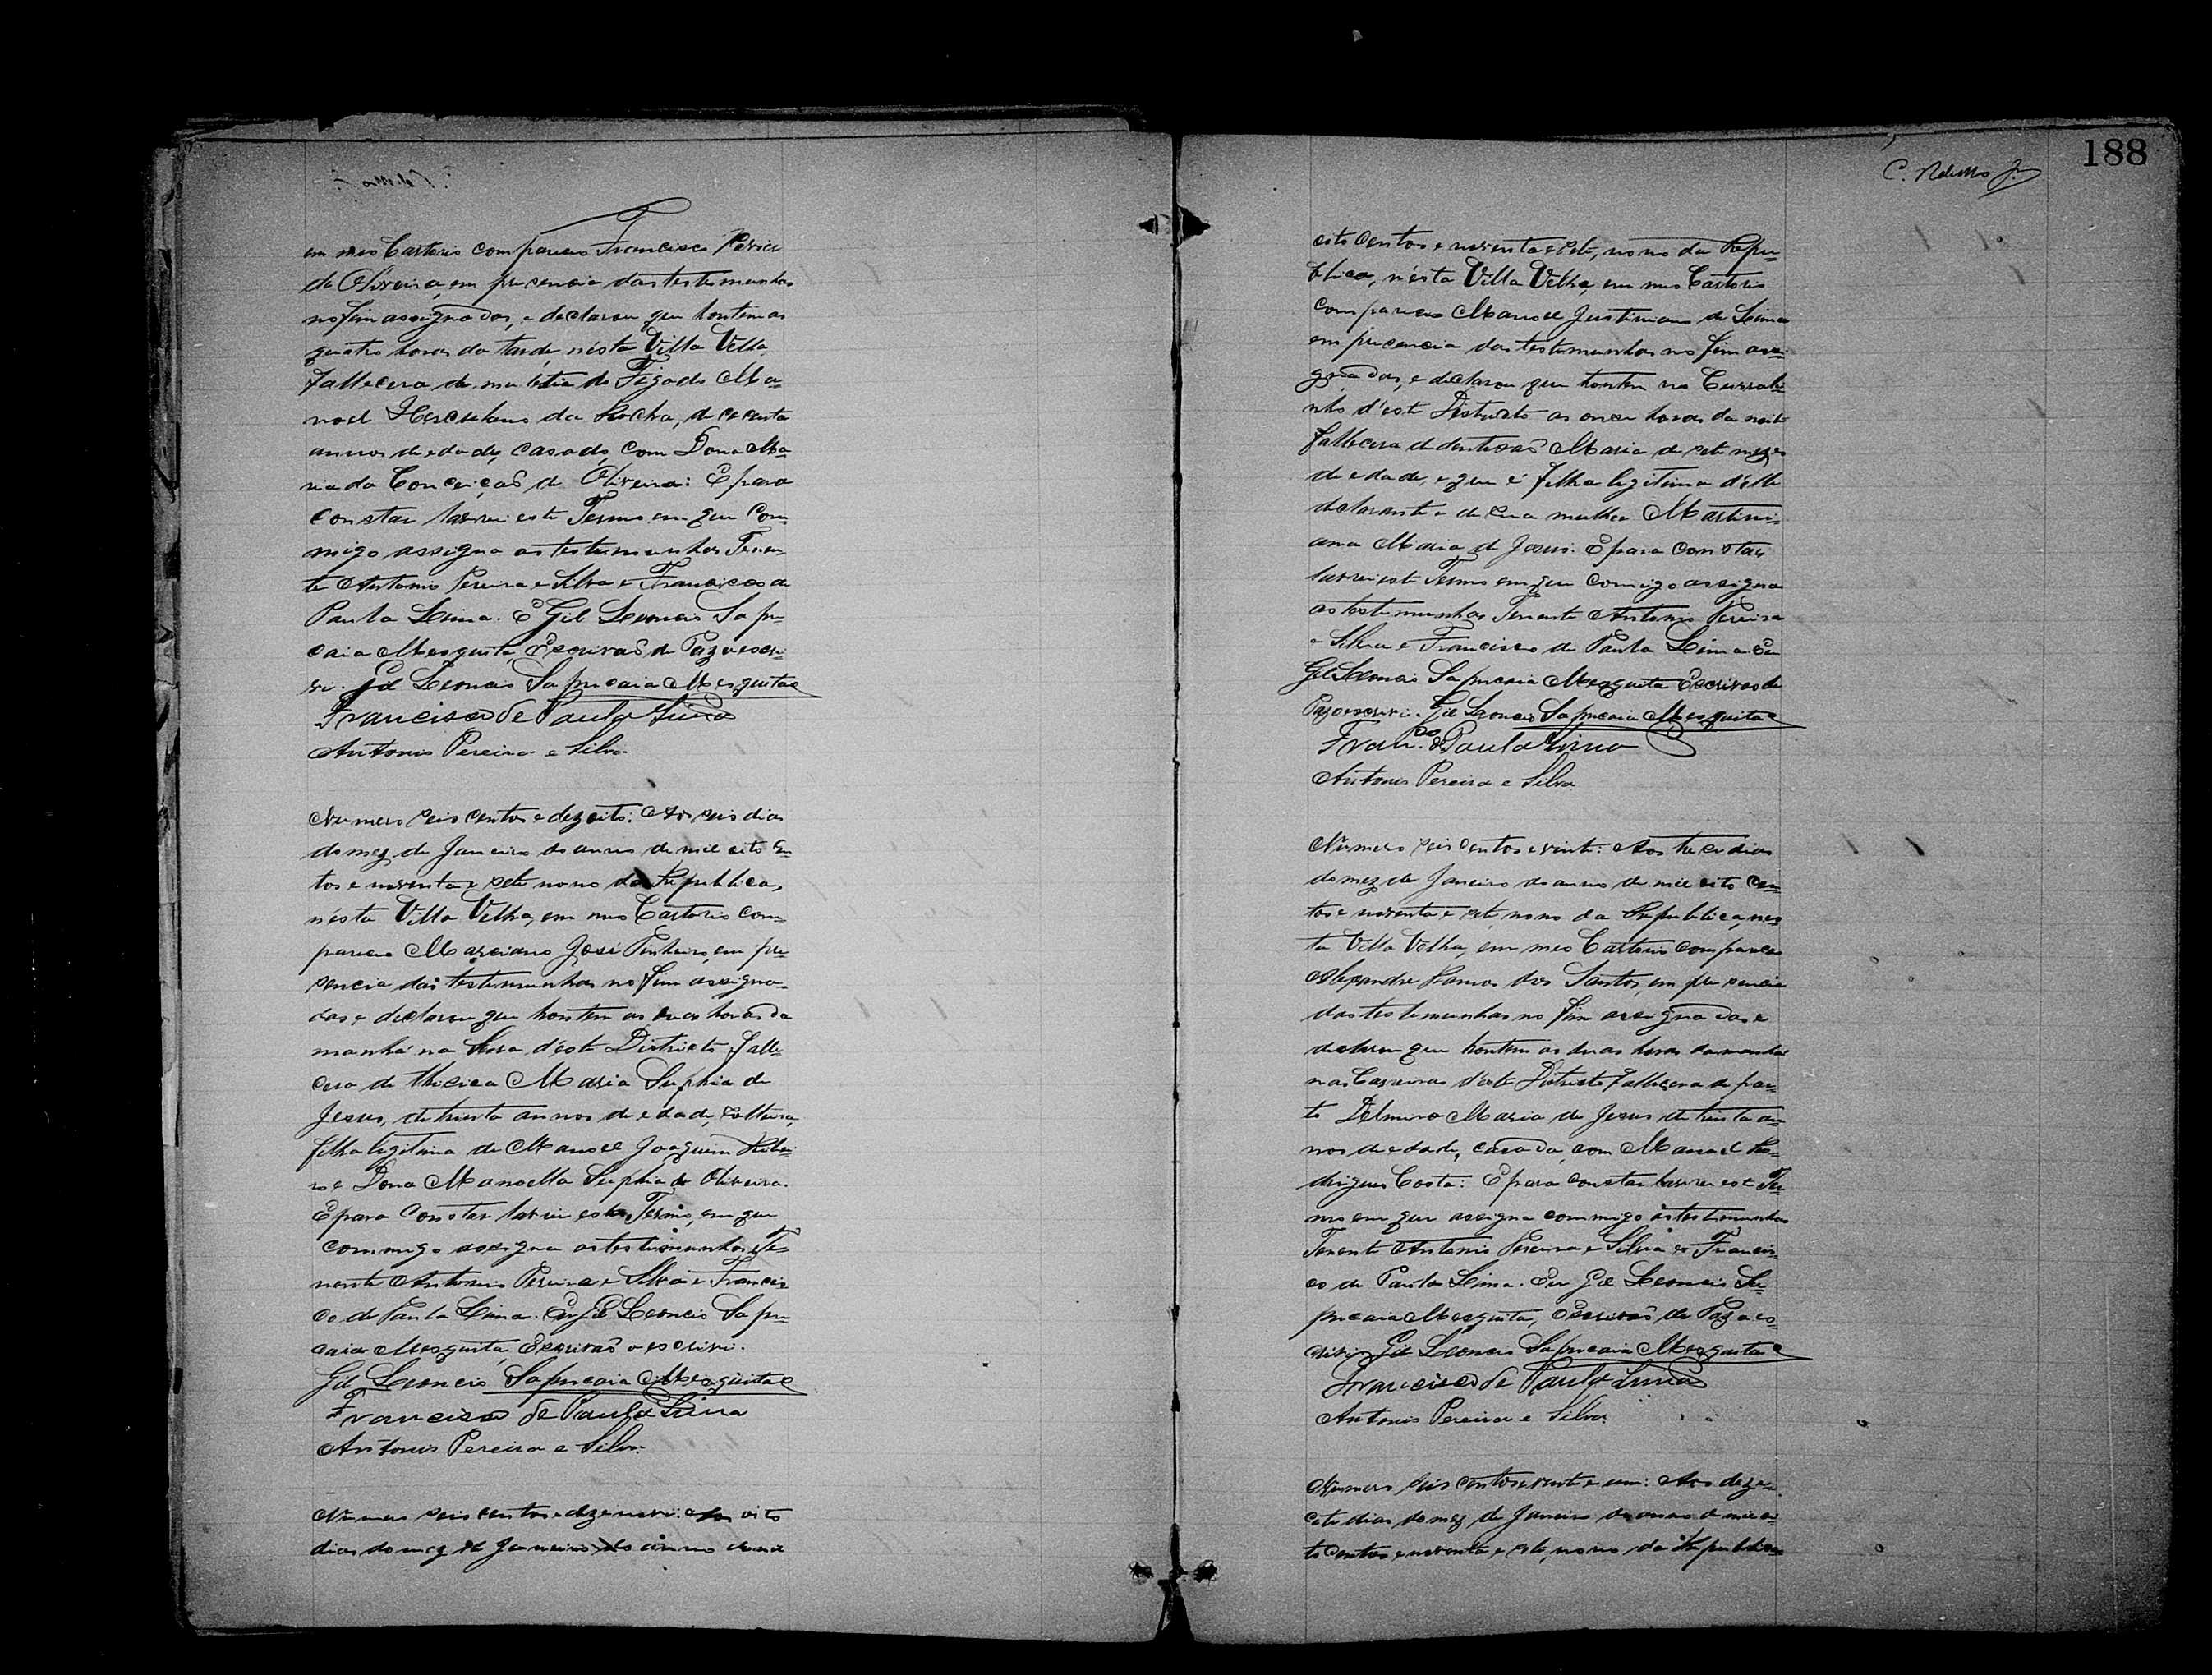 em meo Cartorio compareceo Francisco Xavier
de Oliveira, em presencia das testemunhas
no fim assignadas, e declarou que hontem as
quatro horas da tarde, nésta Villa Velha,
fallecera de molestia do Figado Ma=
noel Herculano da Rocha, de cecenta
annos de edade, casado, com Dona Ma=
ria da Conceição de Oliveira: E para
constar lavrei este Termo, em que com=
migo assigna as testemunhas Tenen=
te Antonio Pereira e Silva e Francisco de
Paula Lima. E Gil Leoncio Sapu=
caia Mesquita, Escrivão de Paz o escre=
vi. Gil Leoncio Sapucaia Mesquita
Francisco de Paula Lima
Antonio Pereira e Silva.
Numero seis centos e dezoito: Aos seis dias
do mez de Janeiro do anno de mil oito cen=
tos e noventa e sete nono da Republica,
nésta Villa Velha, em meo Cartorio com=
pareceo Marciano José Pinheiro, em pre=
sencia das testemunhas no fim assigna=
das e declarou que hontem as horas da
manhã na d'este Districto falle=
cera de thicica Maria Suphia de
Jesus, de trinta annos de edade, solteira,
filha legitima de Manoel Joaquim Ribei=
ro e Dona Manoella Suphia de Oliveira.
E para constar lavrei este Termo, em que
commigo assigna as testemunhas Te=
nente Antonio Pereira e Silva e Francis=
co de Paula Lima. Eu Gil Leoncio Sapu=
caia Mesquita, Escrivão o escrivi.
Gil Leoncio Sapucaia Mesquita
Francisco de Paula Lima
Antonio Pereira e Silva.
Numero seis centos e dezenove: Aos oito
dias do mez de Janeiro do anno de mil
188
oito centos e noventa e sete, nono da Repu=
blica, n'ésta Villa Velha, em meo Cartorio
compareceo Manoel Justiniano de Lima
em presencia das testemunhas no fim assi=
gnadas, e declarou que hontem no Currali=
nho d'este Districto as onze horas da noite
fallecera de dentição Maria de sete mezes
de edade, e que é filha legitima d'elle
declarante e de sua mulher Martini=
ana Maria de Jesus. E para constar
lavrei este Termo em que comigo assigna
as testemunhas Tenente Antonio Pereira
e Silva e Francisco de Paula Lima Eu
Gil Leoncio Sapucaia Mesquita Escrivão de
Paz o escrivi. Gil Leoncio Sapucaia Mesquita
Fran.co de Paula Lima
Antonio Pereira e Silva
Numero seis centos e vinte: Aos treze dias
do mez de Janeiro do anno de mil oito cen=
tos e noventa e sete, nono da Republica, nes=
ta Villa Velha, em meo Cartorio compareceo
Alexandre Ramos dos Santos, em presencia
das testemunhas no fim assignadas e
declarou que hontem as duas horas da manhã
nas Carreiras d'este Districto fallecera de par=
to Delmira Maria de Jesus de trinta an=
nos de edade, casada, com Manoel Ro=
drigues Costa: E para constar lavrei este Ter=
mo em que assigna commigo as testemunhas
Tenente Antonio Pereira e Silva e Francis=
co de Paula Lima. Eu Gil Leoncio Sa=
pucaia Mesquita, Escrivão de Paz o es=
crivi Gil Leoncio Sapucaia Mesquita
Francisco de Paula Lima
Antonio Pereira e Silva
Numero seis centos e vinte e um: Aos deze=
cete dias do mez de Janeiro do anno de mil oi=
to centos e noventa e sete, nono da Republica